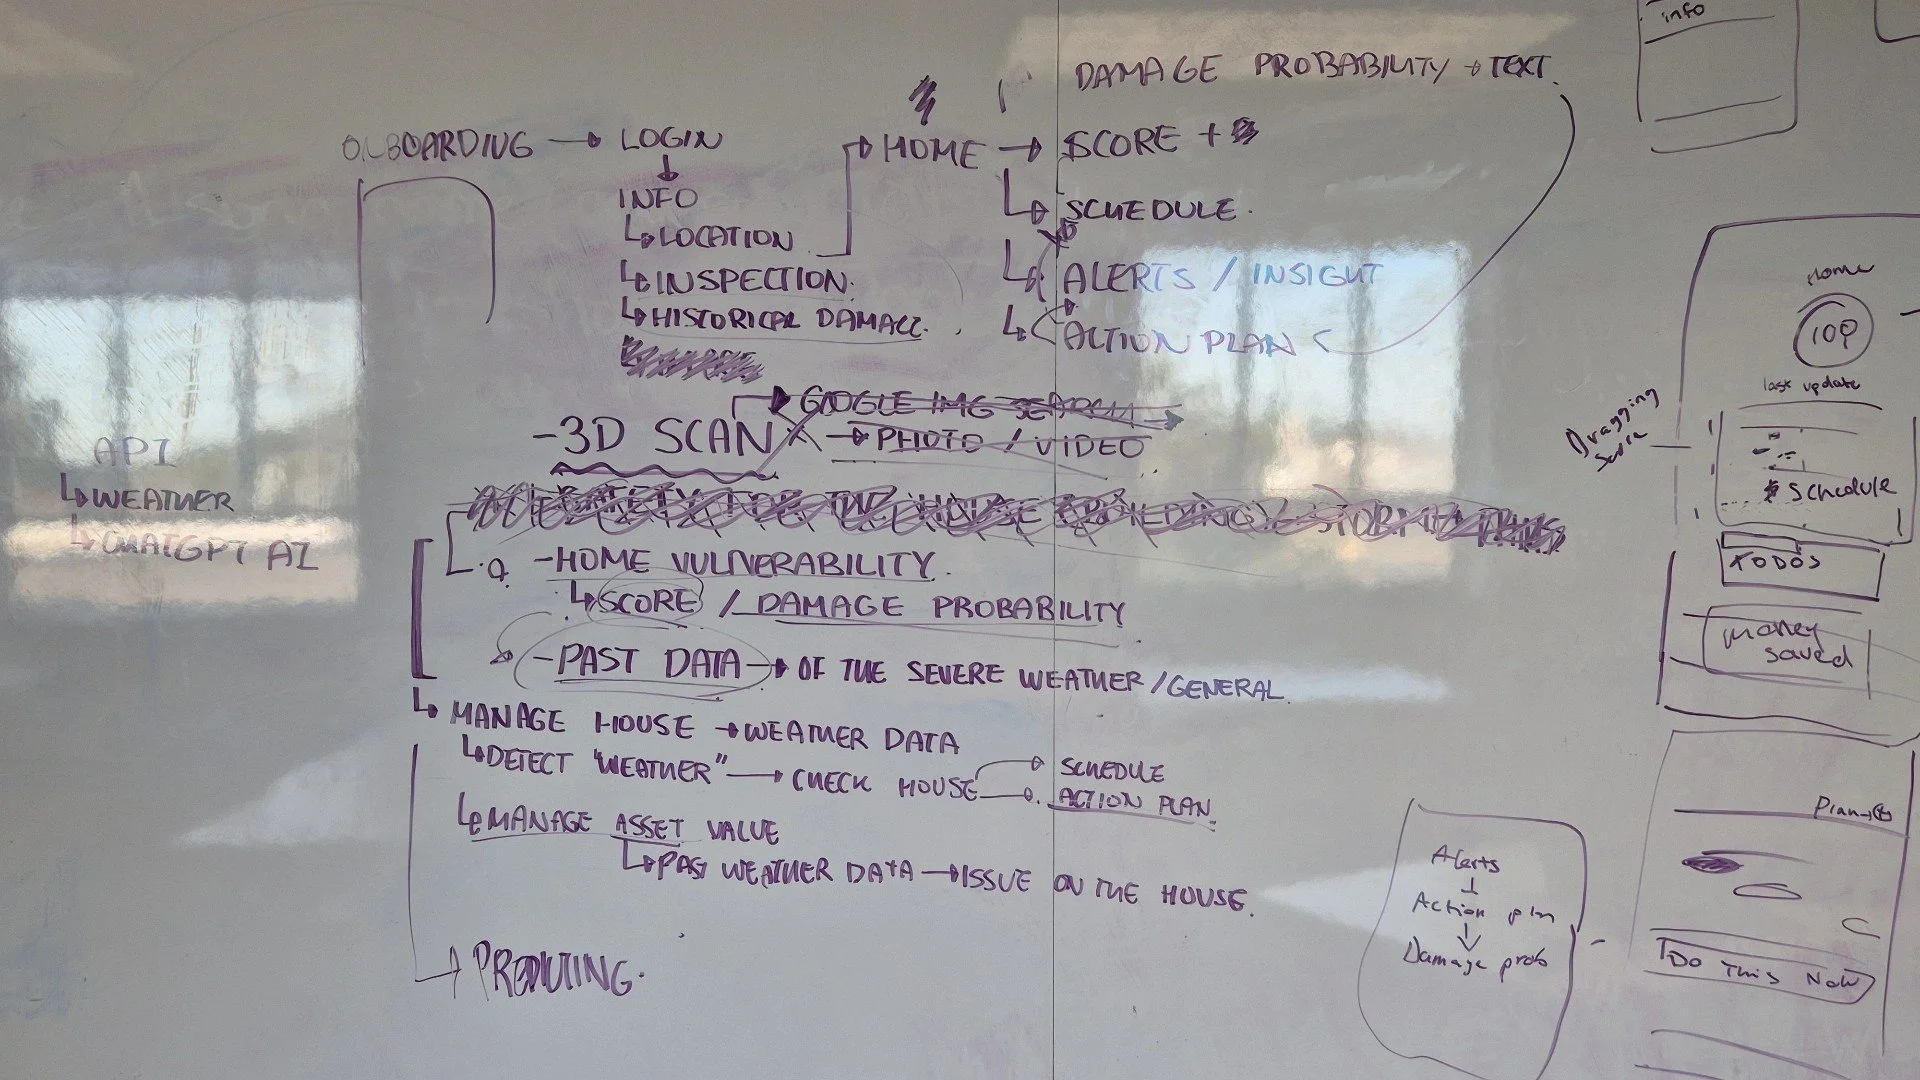 info
DAMAGE PROBABILITY → TEXT.
ONBOARDING → LOGIN
HOME → SCORE +
INFO
↳ LOCATION
↳ SCHEDULE.
↳ INSPECTION.
↳ ALERTS / INSIGHT
↳ HISTORICAL DAMAGE.
↳ ACTION PLAN
→ GOOGLE IMG SEARCH
-3D SCAN → PHOTO / VIDEO
API
↳ WEATHER
↳ CHATGPT AI
-HOME VULNERABILITY.
↳ SCORE / DAMAGE PROBABILITY
-PAST DATA → OF THE SEVERE WEATHER / GENERAL
↳ MANAGE HOUSE → WEATHER DATA
↳ DETECT "WEATHER" → CHECK HOUSE → SCHEDULE
→ ACTION PLAN
↳ MANAGE ASSET VALUE
↳ PAST WEATHER DATA → ISSUE ON THE HOUSE.
→ PREDICTING.
Home
100
last update
Dragging
Schedule
TODOS
money
saved
Plan →
Do This Now
Alerts
↓
Action pln
↓
Damage prob